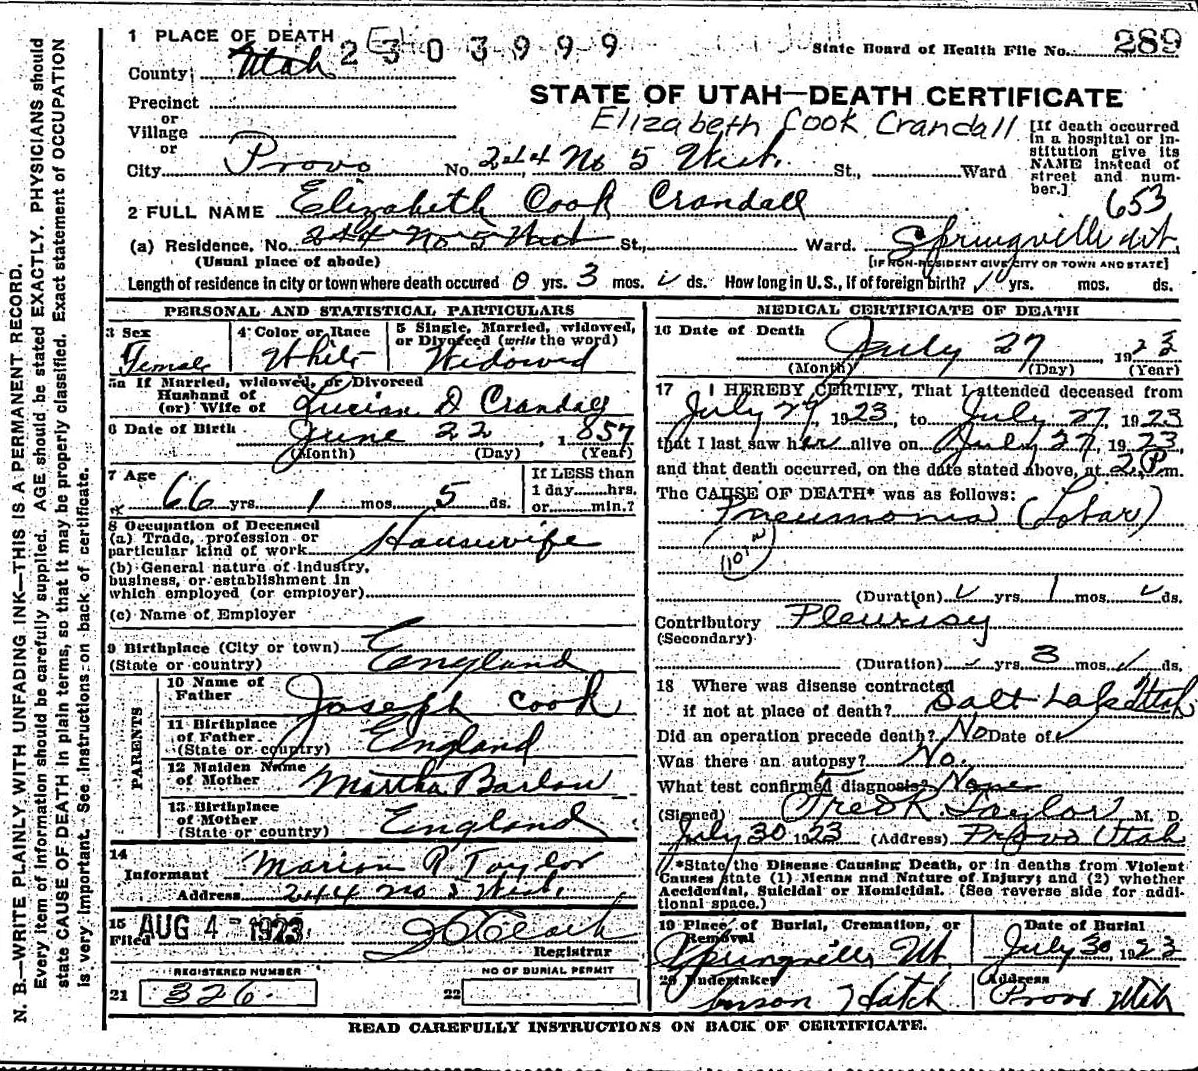 N. B.—WRITE PLAINLY WITH UNFADING INK—THIS IS A PERMANENT RECORD.
Every item of information should be carefully supplied. AGE should be stated EXACTLY. PHYSICIANS should
state CAUSE OF DEATH in plain terms, so that it may be properly classified. Exact statement of OCCUPATION
is very important. See instructions on back of certificate.
1 PLACE OF DEATH
2303999
State Board of Health File No. 289
County Utah
STATE OF UTAH—DEATH CERTIFICATE
Precinct
or
Village
or
Elizabeth Cook Crandall
[If death occurred
in a hospital or in-
stitution give its
NAME instead of
street and num-
ber.]
City Provo No. 244 No 5 West. St., Ward
653
2 FULL NAME Elizabeth Cook Crandall
(a) Residence, No. 244 No 5 West St., Ward. Springville Ut.
(Usual place of abode) [IF NON-RESIDENT GIVE CITY OR TOWN AND STATE]
Length of residence in city or town where death occured 0 yrs. 3 mos. ds. How long in U.S., if of foreign birth? yrs. mos. ds.
PERSONAL AND STATISTICAL PARTICULARS
3 Sex Female
4 Color or Race White
5 Single, Married, widowed,
or Divorced (write the word)
Widowed
5a If Married, widowed, or Divorced
Husband of
(or) Wife of Lucian D Crandall
6 Date of Birth June 22, 1857
(Month) (Day) (Year)
7 Age 66 yrs. 1 mos. 5 ds.
If LESS than
1 day hrs.
or min.?
8 Occupation of Deceased
(a) Trade, profession or
particular kind of work Housewife
(b) General nature of industry,
business, or establishment in
which employed (or employer)
(c) Name of Employer
9 Birthplace (City or town)
(State or country) England
PARENTS
10 Name of
Father Joseph Cook
11 Birthplace
of Father
(State or country) England
12 Maiden Name
of Mother Martha Barlow
13 Birthplace
of Mother
(State or country) England
14
Informant Marion R Taylor
Address 244 no 5 West.
15
Filed AUG 4 - 1923
Registrar
REGISTERED NUMBER
21 326.
NO OF BURIAL PERMIT
22
MEDICAL CERTIFICATE OF DEATH
16 Date of Death July 27 1923
(Month) (Day) (Year)
17 I HEREBY CERTIFY, That I attended deceased from
July 24, 1923, to July 27, 1923
that I last saw her alive on July 27, 1923,
and that death occurred, on the date stated above, at 2 P m.
The CAUSE OF DEATH* was as follows:
Pneumonia (Lobar)
(Duration) yrs. 1 mos. ds.
Contributory Pleurisy
(Secondary)
(Duration) yrs. 3 mos. ds.
18 Where was disease contracted
if not at place of death? Salt Lake Utah
Did an operation precede death? No Date of
Was there an autopsy? No.
What test confirmed diagnosis? None
(Signed) Fred R. Taylor, M. D.
July 30 1923 (Address) Provo Utah
*State the Disease Causing Death, or in deaths from Violent
Causes state (1) Menns and Nature of Injury; and (2) whether
Accidental, Suicidal or Homicidal. (See reverse side for addi-
tional space.)
19 Place of Burial, Cremation, or
Removal
Springville Ut
Date of Burial
July 30, 1923
20 Undertaker
Hatch
Address
Provo Utah
READ CAREFULLY INSTRUCTIONS ON BACK OF CERTIFICATE.